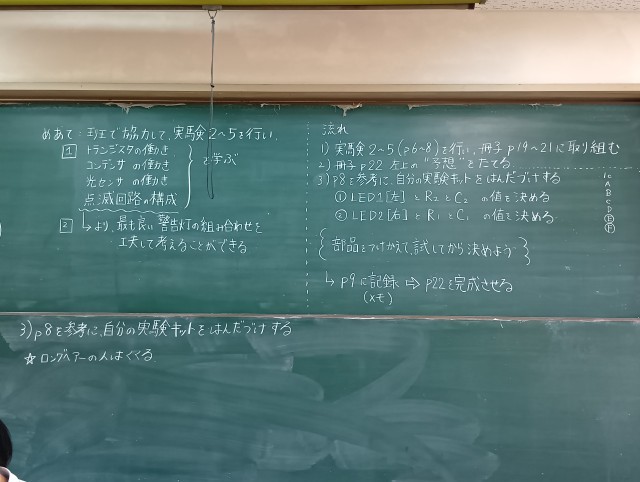 めあて：班で協力して、実験2～5を行い、
1 トランジスタの働き
コンデンサ の働き
光センサ の働き
点滅回路の構成
を学ぶ
2 ↳より、最も良い警告灯の組み合わせを
工夫して考えることができる
流れ
1) 実験2～5(p6～8)を行い、冊子p19～21に取り組む
2) 冊子p22 左上の"予想"をたてる
3) p8を参考に、自分の実験キットをはんだづけする
① LED1[左]とR2とC2の値を決める
② LED2[右]とR1とC1の値を決める
{部品をつけかえて、試してから決めよう}
↳ p9に記録 ⇒ p22を完成させる
(メモ)
A
B
C
D
E
F
3) p8を参考に、自分の実験キットをはんだづけする
☆ ロングヘアーの人はくくる